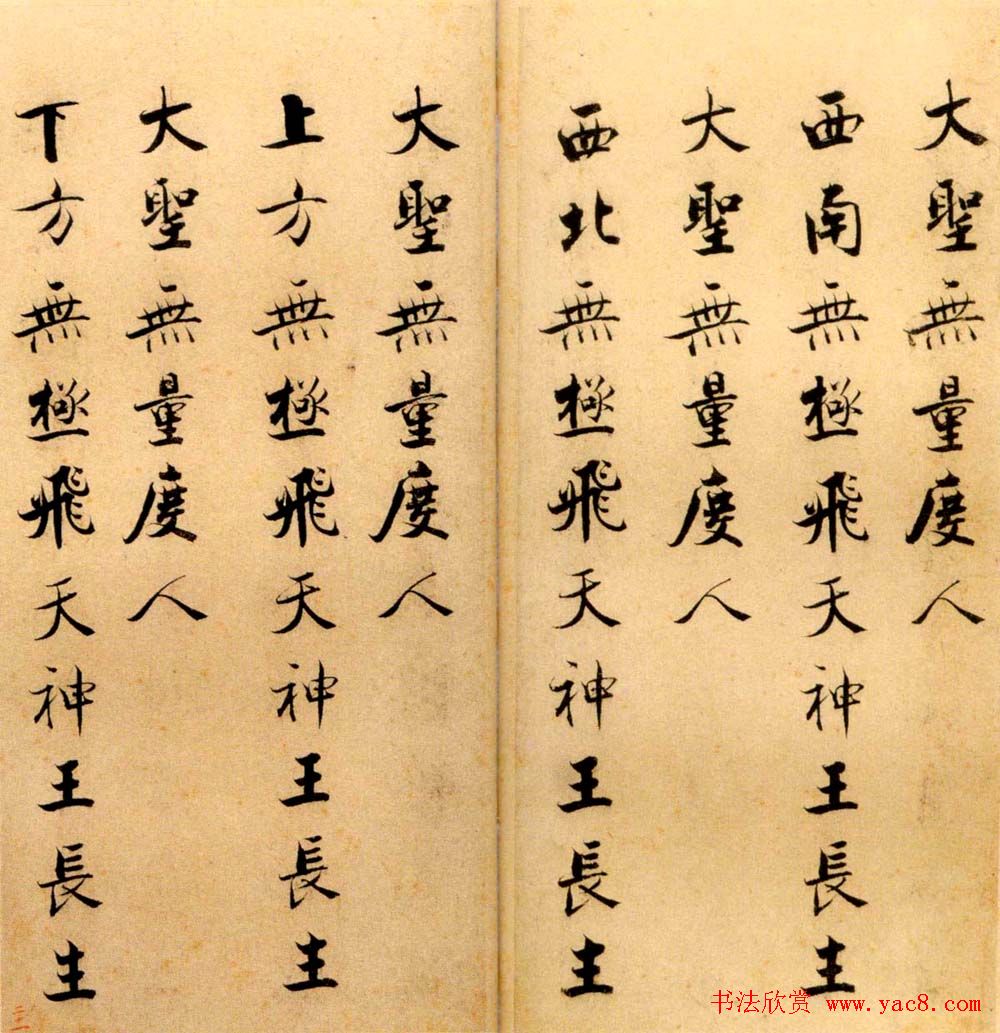 大聖無量度人
西南無極飛天神王長生
大聖無量度人
西北無極飛天神王長生
大聖無量度人
上方無極飛天神王長生
大聖無量度人
下方無極飛天神王長生
书法欣赏 www.yac8.com